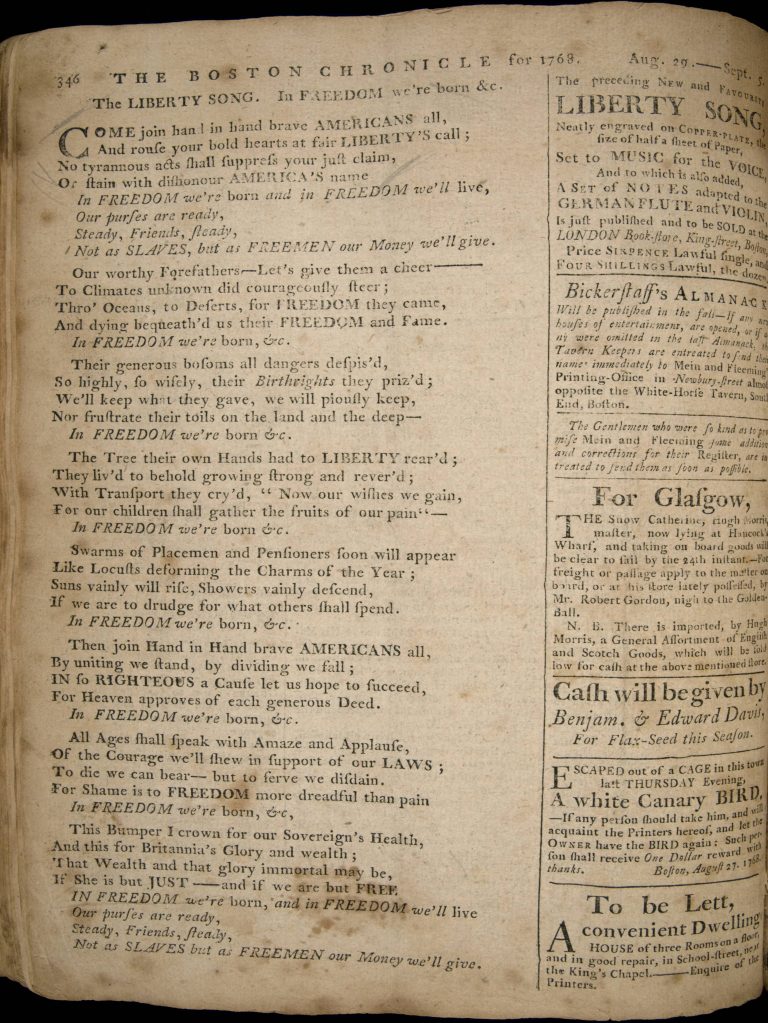 346 THE BOSTON CHRONICLE for 1768. Aug. 29.——Sept. 5.
The LIBERTY SONG. In FREEDOM we're born &c.
COME join hand in hand brave AMERICANS all,
And rouſe your bold hearts at fair LIBERTY'S call;
No tyrannous acts ſhall ſuppreſs your juſt claim,
Or ſtain with diſhonour AMERICA'S name
In FREEDOM we're born and in FREEDOM we'll live,
Our purſes are ready,
Steady, Friends, ſteady,
Not as SLAVES, but as FREEMEN our Money we'll give.
Our worthy Forefathers—Let's give them a cheer——
To Climates unknown did courageouſly ſteer;
Thro' Oceans, to Deſerts, for FREEDOM they came,
And dying bequeath'd us their FREEDOM and Fame.
In FREEDOM we're born, &c.
Their generous boſoms all dangers deſpis'd,
So highly, ſo wiſely, their Birthrights they priz'd;
We'll keep what they gave, we will piouſly keep,
Nor fruſtrate their toils on the land and the deep—
In FREEDOM we're born &c.
The Tree their own Hands had to LIBERTY rear'd;
They liv'd to behold growing ſtrong and rever'd;
With Tranſport they cry'd, “ Now our wiſhes we gain,
For our children ſhall gather the fruits of our pain“—
In FREEDOM we're born &c.
Swarms of Placemen and Penſioners ſoon will appear
Like Locuſts deforming the Charms of the Year;
Suns vainly will riſe, Showers vainly deſcend,
If we are to drudge for what others ſhall ſpend.
In FREEDOM we're born, &c.
Then join Hand in Hand brave AMERICANS all,
By uniting we ſtand, by dividing we fall;
IN ſo RIGHTEOUS a Cauſe let us hope to ſucceed,
For Heaven approves of each generous Deed.
In FREEDOM we're born, &c.
All Ages ſhall ſpeak with Amaze and Applauſe,
Of the Courage we'll ſhew in ſupport of our LAWS;
To die we can bear— but to ſerve we diſdain.
For Shame is to FREEDOM more dreadful than pain
In FREEDOM we're born, &c,
This Bumper I crown for our Sovereign's Health,
And this for Britannia's Glory and wealth;
That Wealth and that glory immortal may be,
If She is but JUST ——and if we are but FREE
IN FREEDOM we're born, and in FREEDOM we'll live
Our purſes are ready,
Steady, Friends, ſteady,
Not as SLAVES but as FREEMEN our Money we'll give.
The preceding NEW and FAVOURITE
LIBERTY SONG,
Neatly engraved on COPPER-PLATE, the
ſize of half a ſheet of Paper,
Set to MUSIC for the VOICE,
And to which is alſo added,
A SET of NOTES adapted to the
GERMAN FLUTE and VIOLIN,
Is juſt publiſhed and to be SOLD at the
LONDON Book-ſtore, King-ſtreet, Boſton,
Price SIXPENCE Lawful ſingle, and
FOUR SHILLINGS Lawful, the dozen.
Bickerſtaff's ALMANACK
Will be publiſhed in the fall—If any new
houſes of entertainment, are opened, or if
ny were omitted in the laſt Almanack, the
Tavern Keepers are entreated to ſend their
names immediately to Mein and Fleeming's
Printing-Office in Newbury-ſtreet almoſt
oppoſite the White-Horſe Tavern, South
End, Boſton.
The Gentlemen who were ſo kind as to pro
miſe Mein and Fleeming ſome additions
and corrections for their Regiſter, are in
treated to ſend them as ſoon as poſſible.
For Glaſgow,
THE Snow Catherine, Hugh Morris,
maſter, now lying at Hancock's
Wharf, and taking on board goods will
be clear to ſail by the 24th inſtant.—For
freight or paſſage apply to the maſter on
board, or at his ſtore lately poſſeſſed, by
Mr. Robert Gordon, nigh to the Golden-
Ball.
N. B. There is imported, by Hugh
Morris, a General Aſſortment of Engliſh
and Scotch Goods, which will be ſold
low for caſh at the above mentioned ſtore.
Caſh will be given by
Benjam. & Edward Davis,
For Flax-Seed this Seaſon.
ESCAPED out of a CAGE in this town
laſt THURSDAY Evening,
A white Canary BIRD,
—If any perſon ſhould take him, and will
acquaint the Printers hereof, and let the
OWNER have the BIRD again: Such per-
ſon ſhall receive One Dollar reward with
thanks. Boſton, Auguſt 27. 1768.
To be Lett,
A convenient Dwelling
HOUSE of three Rooms on a floor,
and in good repair, in School-ſtreet, near
the King's Chapel.——Enquire of the
Printers.